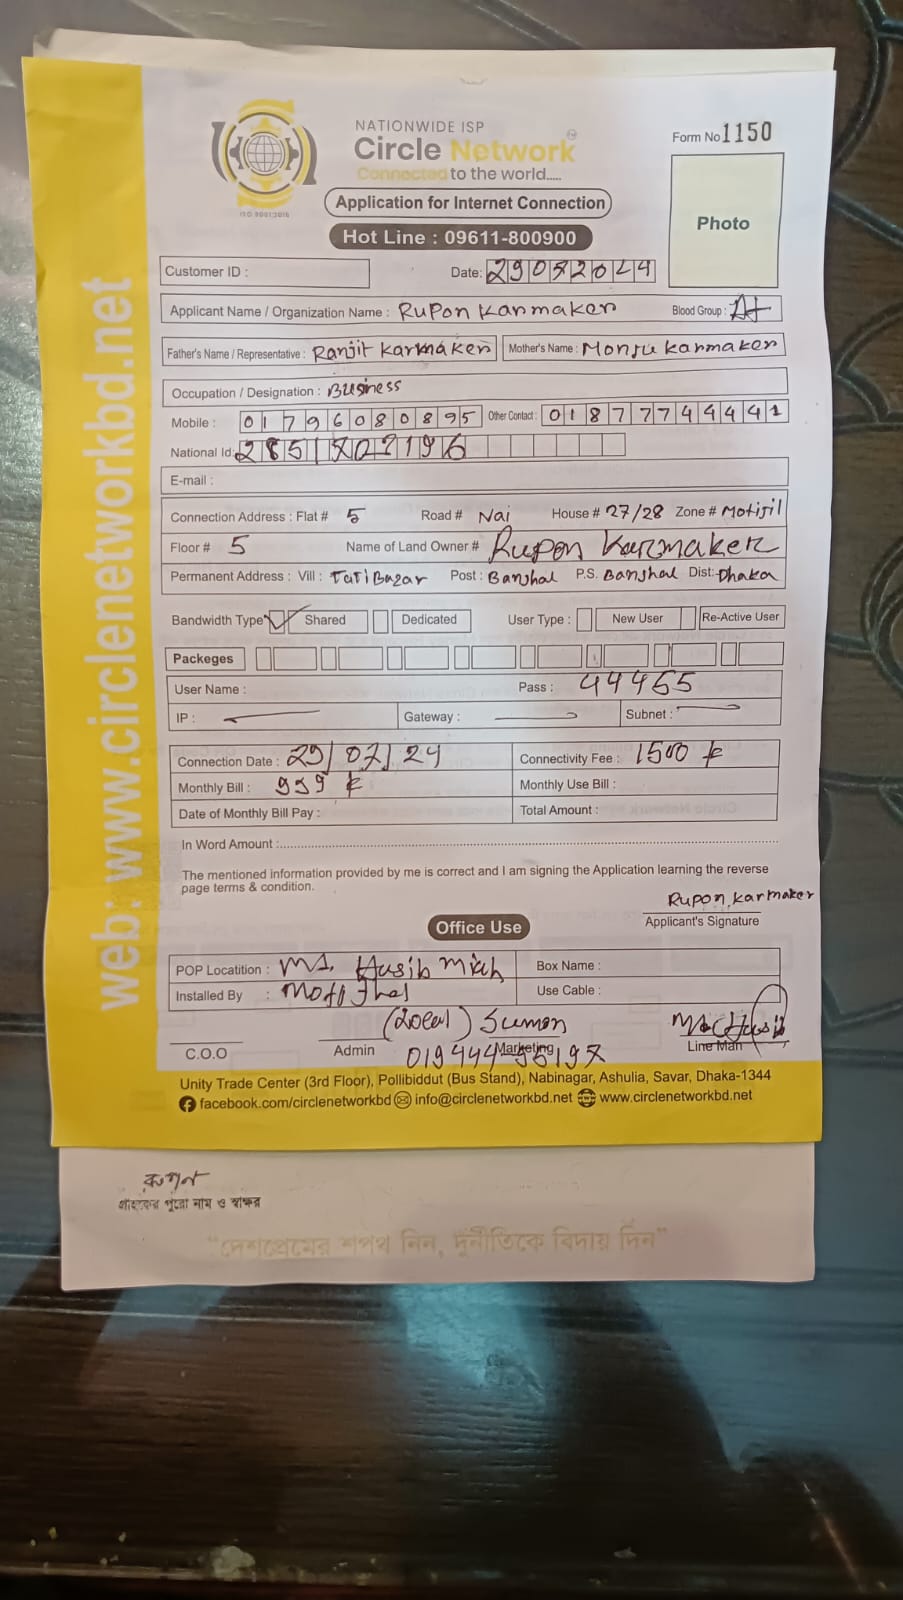 NATIONWIDE ISP
Circle Network
Connected to the world.....
ISO 9001:2015
Form No 1150
Photo
Application for Internet Connection
Hot Line : 09611-800900
Customer ID :
Date: 29072024
Applicant Name / Organization Name : Rupon Karmaker
Blood Group : A+
Father's Name / Representative : Ranjit Karmaker Mother's Name : Monju Karmaker
Occupation / Designation : Business
Mobile : 01796080895 Other Contact : 01877744441
National Id: 
E-mail :
Connection Address : Flat # 5 Road # Nai House # 27/28 Zone # Motijil
Floor # 5 Name of Land Owner # Rupon Karmaker
Permanent Address : Vill : TatiBazar Post : Banshal P.S. Banshal Dist: Dhaka
Bandwidth Type Shared Dedicated User Type : New User Re-Active User
Packeges
User Name : Pass : 44455
IP : Gateway : Subnet :
Connection Date : 29/07/24 Connectivity Fee : 1500 
Monthly Bill : 999 Monthly Use Bill :
Date of Monthly Bill Pay : Total Amount :
In Word Amount :
The mentioned information provided by me is correct and I am signing the Application learning the reverse
page terms & condition.
Rupon Karmaker
Applicant's Signature
Office Use
POP Locatition : Md. Hasib Miah Box Name :
Installed By : Use Cable :
(Local) Sumon
C.O.O Admin Marketing Line Man
Unity Trade Center (3rd Floor), Pollibiddut (Bus Stand), Nabinagar, Ashulia, Savar, Dhaka-1344
facebook.com/circlenetworkbd info@circlenetworkbd.net www.circlenetworkbd.net
web: www.circlenetworkbd.net
রুপন
গ্রাহকের পুরো নাম ও স্বাক্ষর
“দেশপ্রেমের শপথ নিন, দুর্নীতিকে বিদায় দিন”